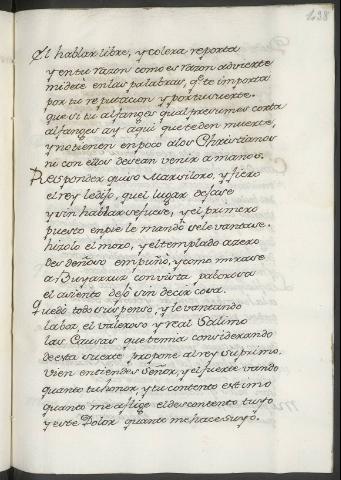 138
El hablar libre, y colera reporta
y en tu razon como es razon advierte
mi dece en las palabras, q.e te importa
por tu reputacion y por tu suerte.
que si tu alfange qual presumes corta
alfanges ay aqui que te den muerte,
y no tienen en poco a los Christianos
ni con ellos desean venir a manos.
Responder quiso Marsiloro, y fiero
el rey le dijo, que el lugar dejase
y sin hablar se fuese, y el primero
puesto en pie le mandò se levantase.
hizolo el moro, y el templado azero
desdeñoso empuño, y como mirase
a Buyarruz con vista pavorosa
el asiento dejò sin decir cosa.
Quedò todo suspenso, y levantando
la boz, el valeroso y real Salimo
las Causas que temia considerando
de esta suerte propone al rey su primo.
vien entiendes Señor, y el fuerte vando
quanto tu honor, y tu contento estimo
quanto me aflige el descontento tuyo
y este Dolor quante me hace suyo.